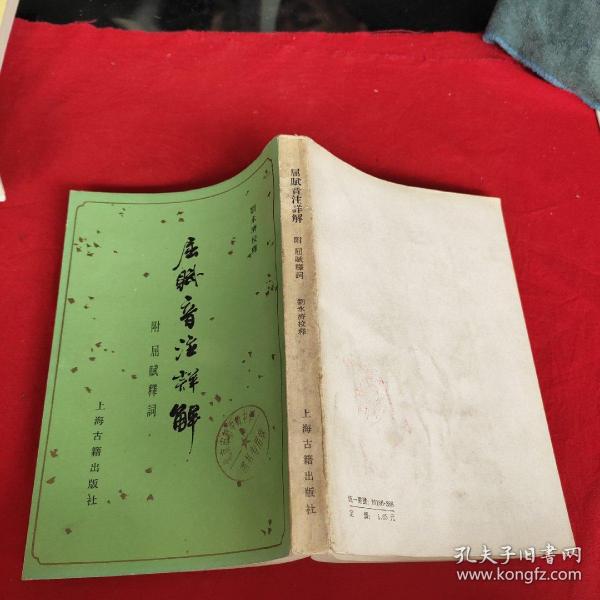 劉永濟校釋
屈賦音注詳解
附 屈賦釋詞
上海古籍出版社
屈賦音注詳解 附 屈賦釋詞 劉永濟校釋 上海古籍出版社
統一書號:10186·398
定 價:1.05元
孔夫子旧书网
www.kongfz.com